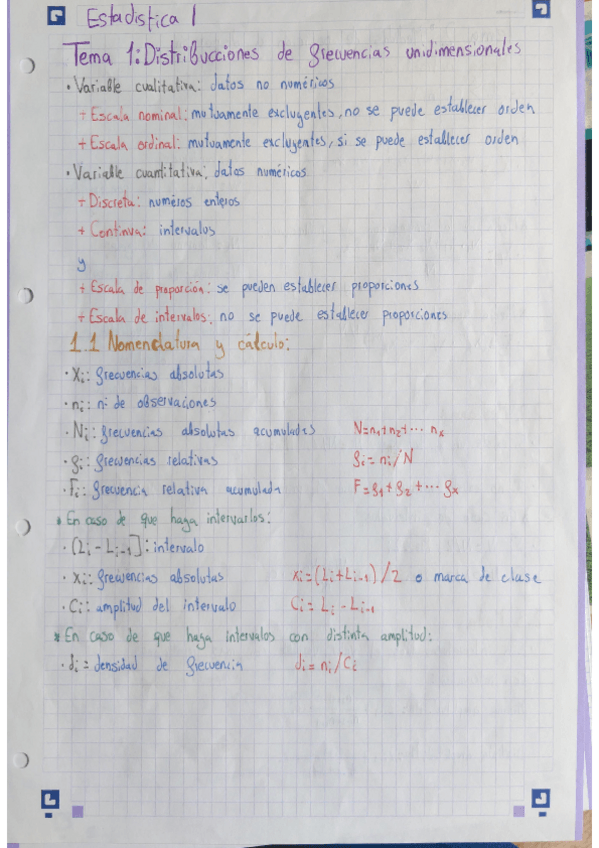 Estadistica 1
Tema 1: Distribucciones de frecuencias unidimensionales
· Variable cualitativa: datos no numéricos
+ Escala nominal: mutuamente excluyentes, no se puede establecer orden
+ Escala ordinal: mutuamente excluyentes, si se puede establecer orden
· Variable cuantitativa: datos numéricos
+ Discreta: numéros enteros
+ Continua: intervalos
y
+ Escala de proporción: se pueden establecer proporciones
+ Escala de intervalos: no se puede establecer proporciones
1.1 Nomenclatura y cálculo:
· Xi: frecuencias absolutas
· ni: nº de observaciones
· Ni: frecuencias absolutas acumuladas N=n1+n2+... nx
· fi: frecuencias relativas fi=ni/N
· Fi: frecuencia relativa acumulada F=f1+f2+... fx
* En caso de que haga intervarlos:
· (Li - Li-1]: intervalo
· xi: frecuencias absolutas xi=(Li+Li-1)/2 o marca de clase
· Ci: amplitud del intervalo Ci = Li - Li-1
* En caso de que haga intervalos con distinta amplitud:
· di = densidad de frecuencia di = ni/Ci